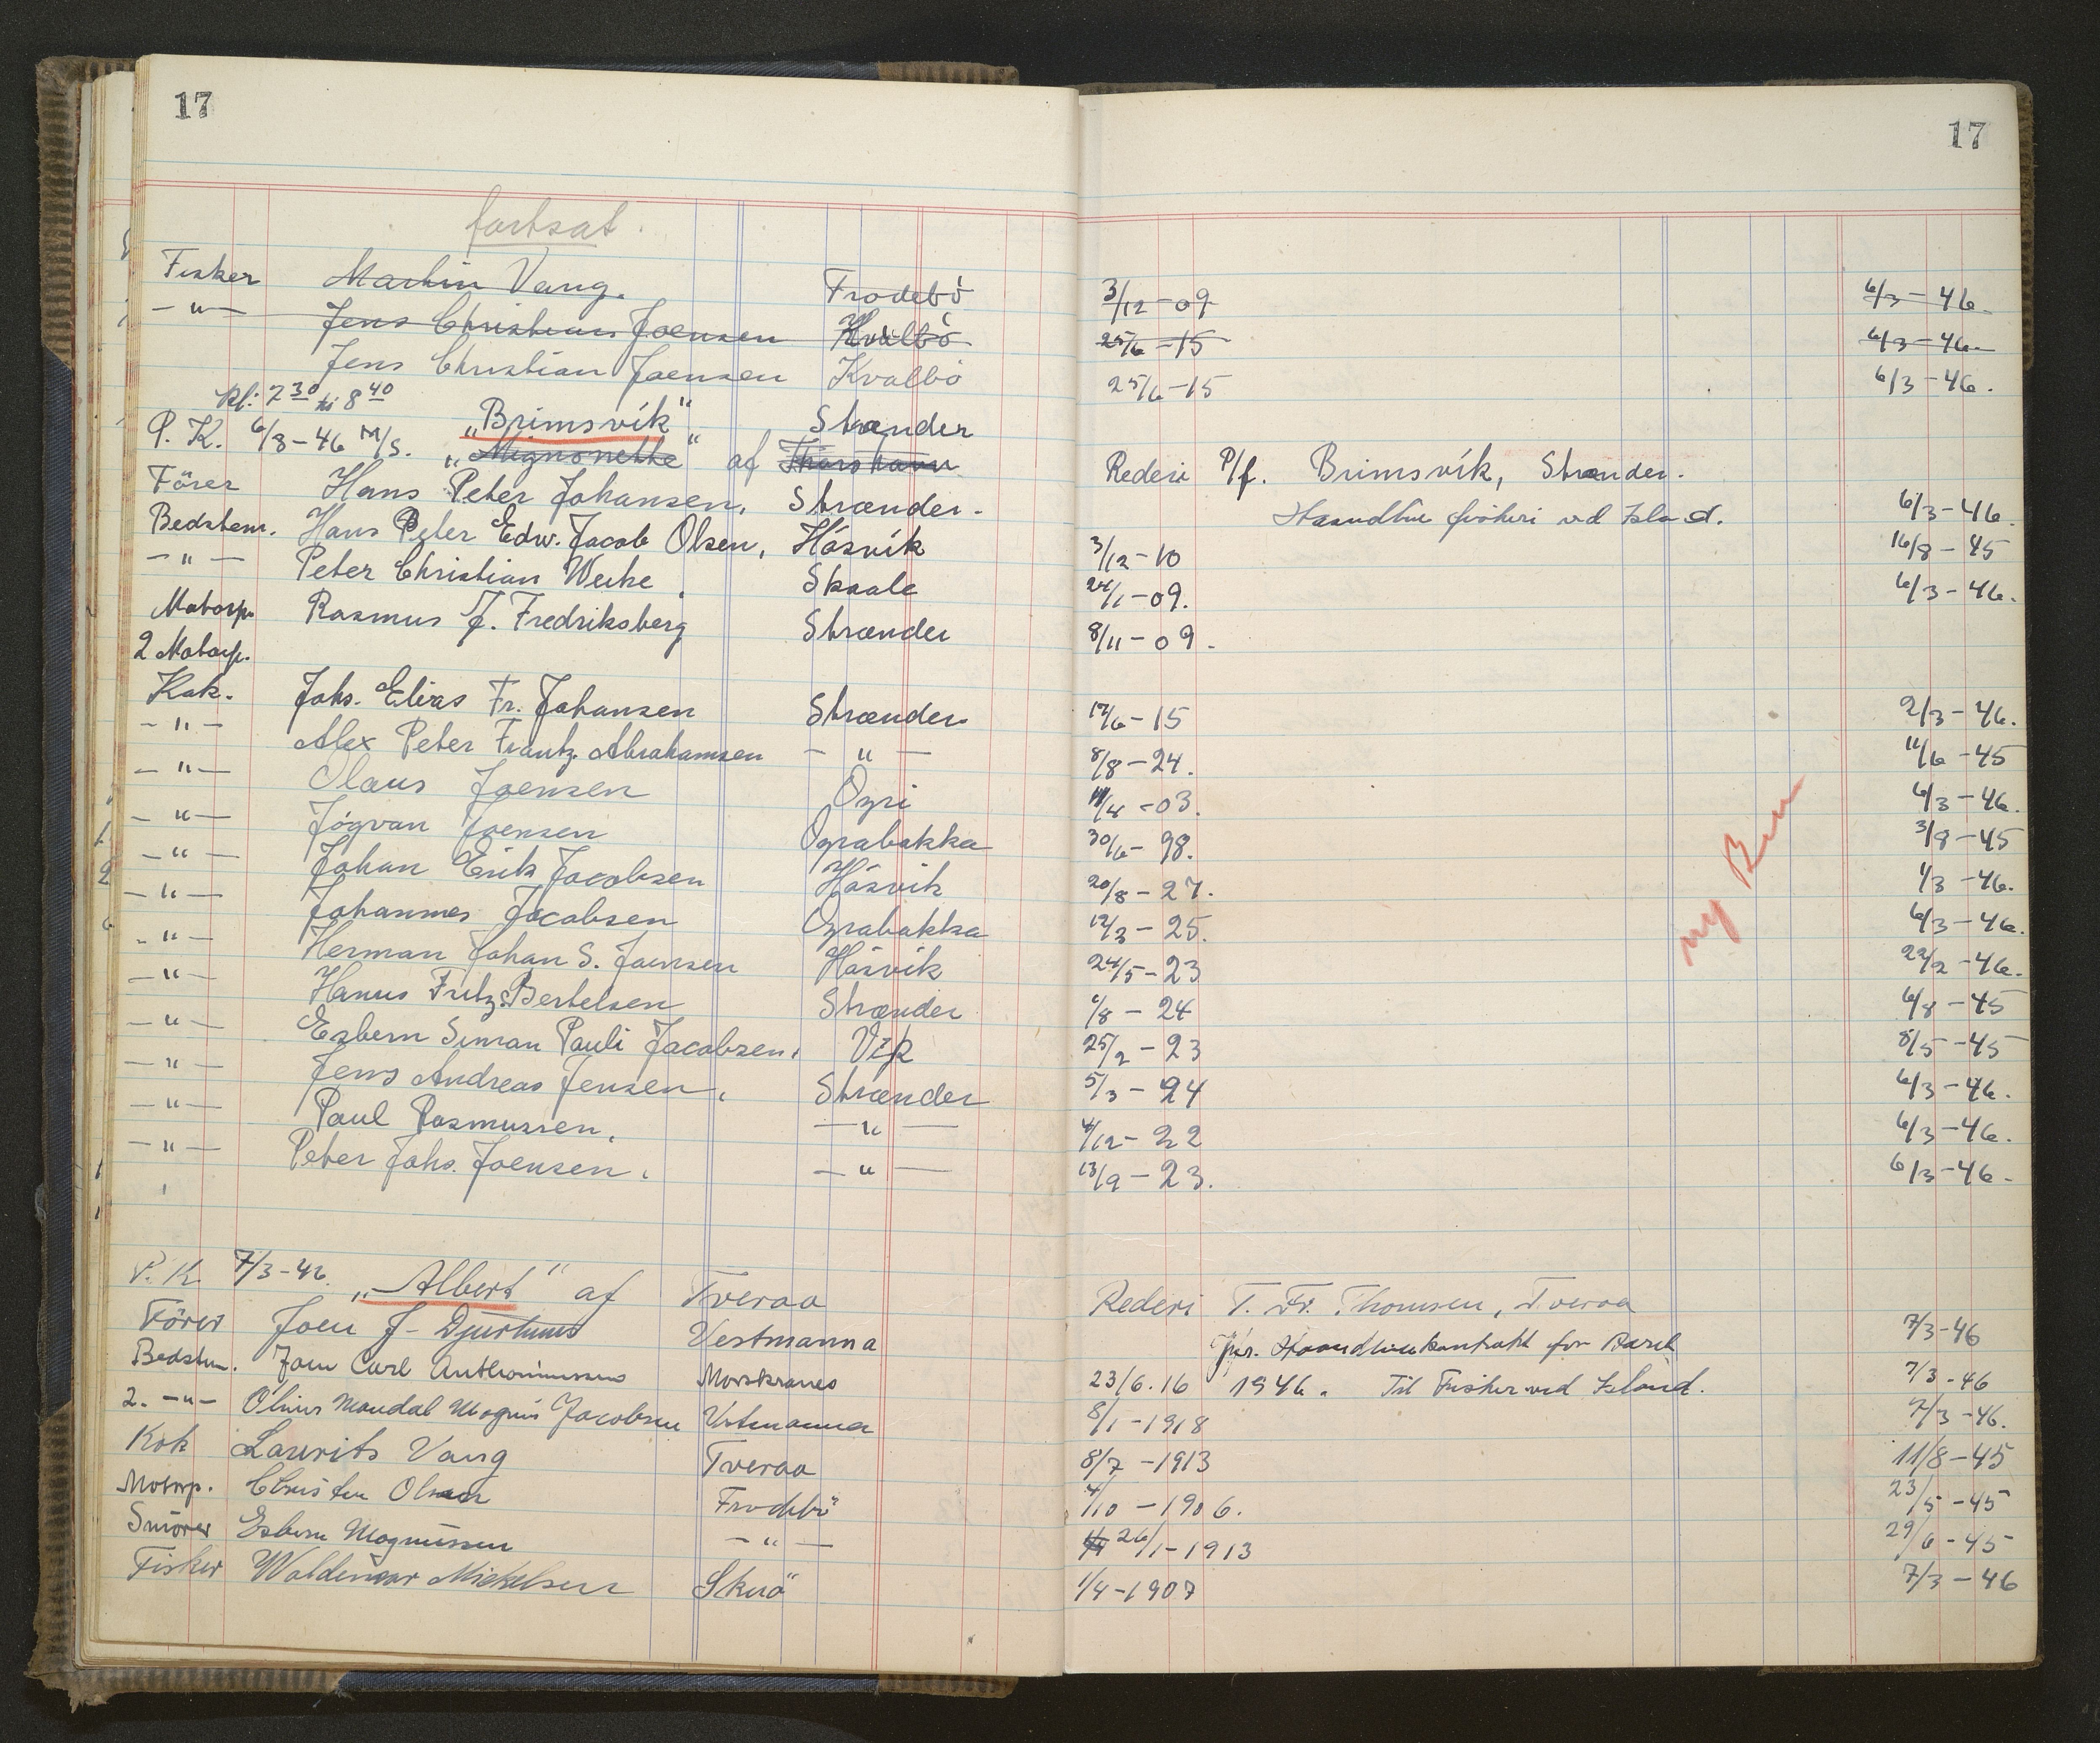 17 17
fortsat.
Fisker Martin Vang. Frodebö 3/12-09 6/3-46
-"- Jens Christian Joensen Kvalbö 25/6-15 6/3-46.
Jens Christian Joensen Kvalbö 25/6-15 6/3-46.
Kl: 7 30 til 8 40
„Brimsvík" Strænder
P. K. 6/8-46 M/S. „Mignonette" af Thorshavn Rederi P/f. Brimsvík, Strænder.
Förer Hans Peter Johansen, Strænder. Haandline fiskeri ved Island. 6/3-46.
Bedstem. Hans Peter Edw. Jacob Olsen, Hósvík 3/12-10 16/8-45
-"- Peter Christian Weihe, Skaale 24/1-09. 6/3-46.
Motorp. Rasmus J. Fredriksberg Strænder 8/11-09.
2 Motorp.
Kok. Johs. Elias Fr. Johansen Strænder 17/6-15 2/3-46.
-"- Alex Peter Frantz Abrahamsen -"- 8/8-24. 11/6-45
-"- Olaus Joensen Oyri 11/4-03. 6/3-46.
-"- Jógvan Joensen Oyrabakka 30/6-98. 3/8-45
-"- Johan Erik Jacobsen Hósvík 20/8-27. 1/3-46.
-"- Johannes Jacobsen Oyrabakka 12/3-25. 6/3-46.
-"- Herman Johan S. Joensen Hósvík 24/5-23 22/2-46.
-"- Hanus Fritz Bertelsen Strænder 6/8-24 6/8-45
-"- Esbern Simon Pauli Jacobsen, Vik 25/2-23 8/5-45
-"- Jens Andreas Jensen, Strænder 5/3-24 6/3-46.
-"- Paul Rasmussen, -"- 4/12-22 6/3-46.
-"- Peter Johs. Joensen. -"- 13/9-23. 6/3-46.
ny
P. K. 7/3-46. „Albert" af Tveraa Rederi T. Fr. Thomsen, Tveraa
Förer Joen J- Djurhuus Vestmanna Haandlinekontrakt for 7/3-46
Bedstm. Joen Carl Morskranes 23/6.16 1946. Til Fiskeri ved Island. 7/3-46
2. -"- Olivur Mandal Magnus Jacobsen Vestmanna 8/1-1918 7/3-46.
Kok Laurits Vang Tveraa 8/7-1913 11/8-45
Motorp. Christen Olsen Frodebö 4/10-1906. 23/5-45
Smörer Esbern Magnussen -"- 26/1-1913 29/6-45
Fisker Waldemar Mickelsen Skuö 1/4-1907 7/3-46